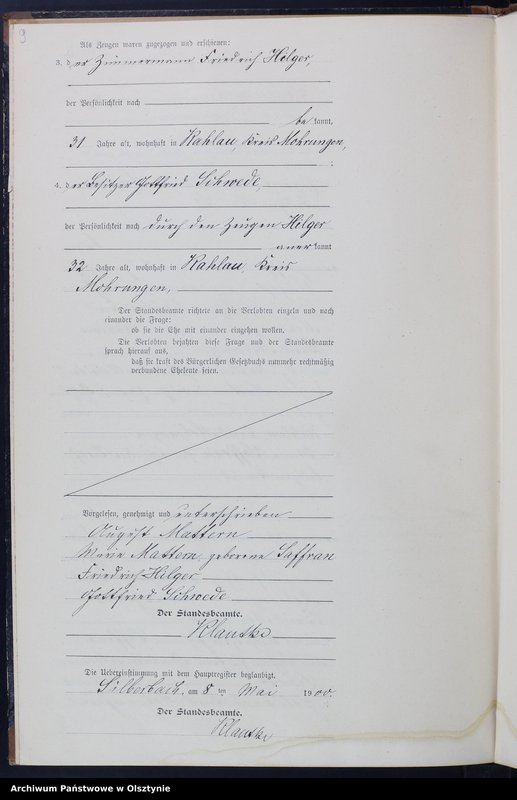 9
Als Zeugen waren zugezogen und erschienen:
3. der Zimmermann Friedrich Hilger,
der Persönlichkeit nach
bekannt,
31 Jahre alt, wohnhaft in Kahlau, Kreis Mohrungen,
;
4. der Besitzer Gottfried Schwede,
der Persönlichkeit nach durch den Zeugen Hilger
anerkannt
32 Jahre alt, wohnhaft in Kahlau, Kreis
Mohrungen,
Der Standesbeamte richtete an die Verlobten einzeln und nach
einander die Frage:
ob sie die Ehe mit einander eingehen wollen.
Die Verlobten bejahten diese Frage und der Standesbeamte
sprach hierauf aus,
daß sie kraft des Bürgerlichen Gesetzbuchs nunmehr rechtmäßig
verbundene Eheleute seien.
Vorgelesen, genehmigt und unterschrieben
August Mattern
Marie Mattern, geborene Saffran
Friedrich Hilger
Gottfried Schwede
Der Standesbeamte.
Klautke
Die Uebereinstimmung mit dem Hauptregister beglaubigt.
Silberbach, am 8. ten Mai 1900.
Der Standesbeamte.
Klautke
Archiwum Państwowe w Olsztynie